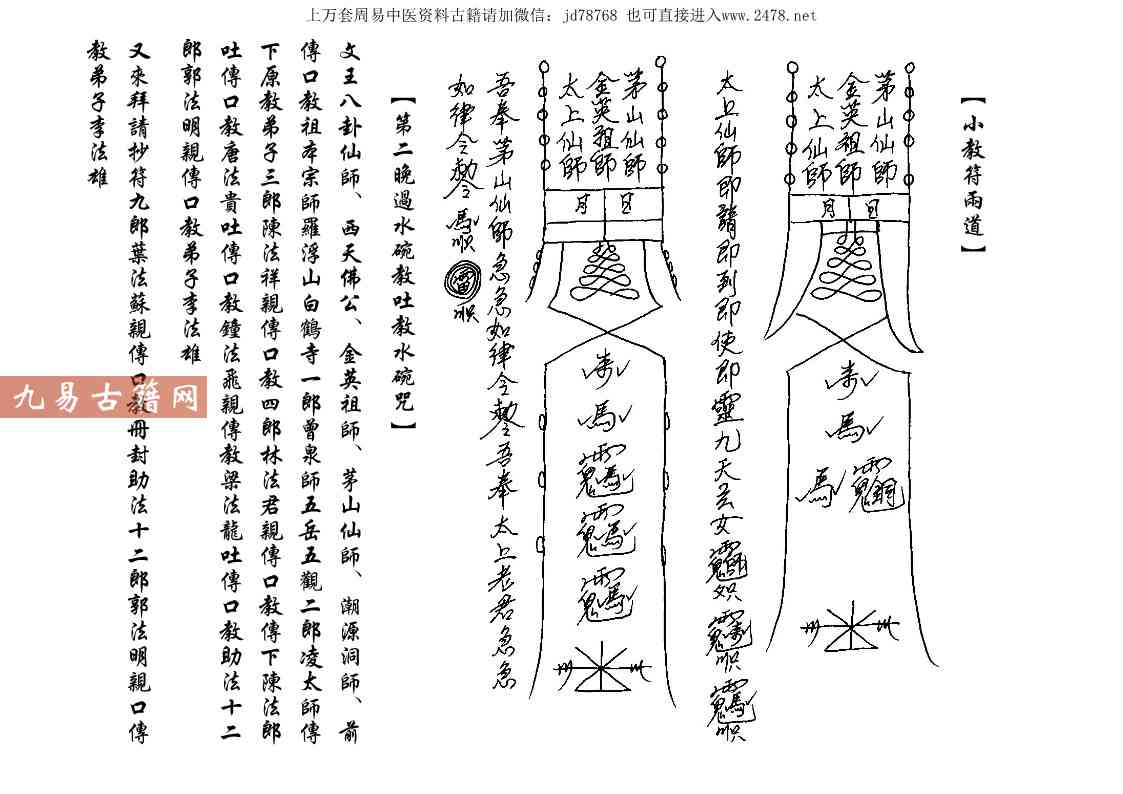 上万套周易中医资料古籍请加微信：jd78768 也可直接进入www.2478.net
【小教符兩道】
茅山仙師
金英祖師
太上仙師
日
月
太上仙師即請即到即使即靈九天玄女
茅山仙師
金英祖師
太上仙師
日
月
吾奉茅山仙師急急如律令勅令吾奉太上老君急急
如律令勅令
【第二晚過水碗教吐教水碗咒】
文王八卦仙師、西天佛公、金英祖師、茅山仙師、潮源洞師、前
傳口教祖本宗師羅浮山白鶴寺一郎曾泉師五岳五觀二郎凌太師傳
下原教弟子三郎陳法祥親傳口教四郎林法君親傳口教傳下陳法郎
吐傳口教唐法貴吐傳口教鐘法飛親傳教梁法龍吐傳口教助法十二
郎郭法明親傳口教弟子李法雄
又來拜請抄符九郎葉法蘇親傳口教冊封助法十二郎郭法明親口傳
教弟子李法雄
九易古籍网